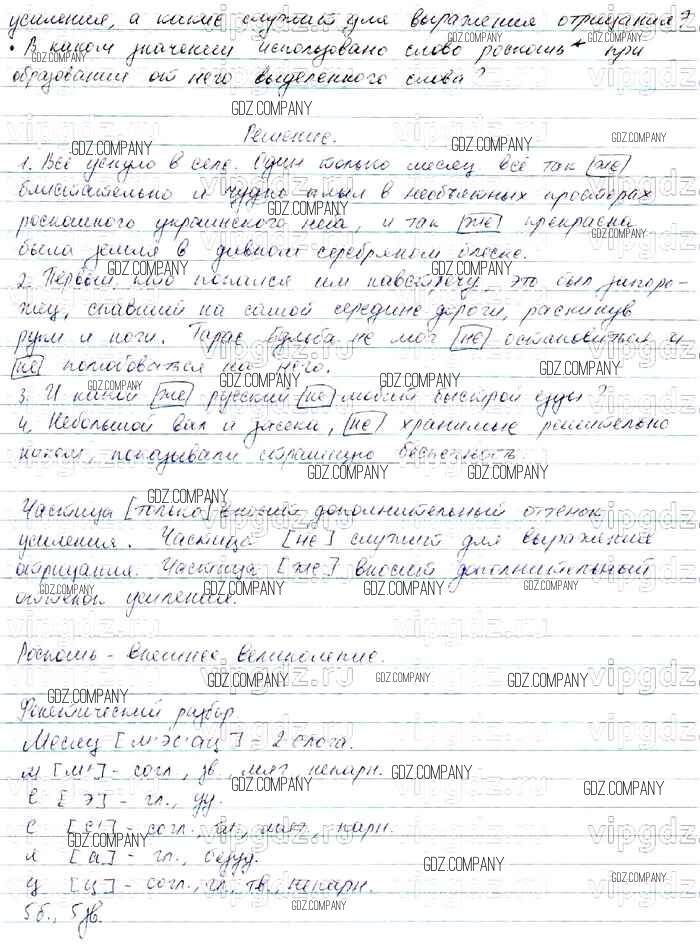 усиления, а какие служит для выражения отрицания?
• В каком значении использовано слово роскошь при
образовании от него выделенного слова?
Решение.
1. Всё уснуло в селе. Один только месяц всё так [же]
блистательно и чудно плыл в необъятных просторах
роскошного украинского неба, и так [же] прекрасна
была земля в дивном серебряном блеске.
2. Первый, кто попался им навстречу, это был запоро-
жец, спавший на самой середине дороги, раскинув
руки и ноги. Тарас Бульба не мог [не] остановиться и
[не] полюбоваться на него.
3. И какой [же] русский [не] любит быстрой езды?
4. Небольшой вал и засеки, [не] хранимые решительно
никем, показывали страшную беспечность.
Частица [только] вносит дополнительный оттенок
усиления. Частица [не] служит для выражения
отрицания. Частица [же] вносит дополнительный
оттенок усиления.
Роскошь - внешнее великолепие.
Фонетический разбор.
Месяц [м'эс'ац] - 2 слога.
м [м'] - согл., зв., мяг., непарн.
е [э] - гл., уд.
с [с'] - согл., гл., мяг., парн.
я [а] - гл., безуд.
ц [ц] - согл., гл., тв., непарн.
5 б., 5 зв.
GDZ.COMPANY
vipgdz.ru